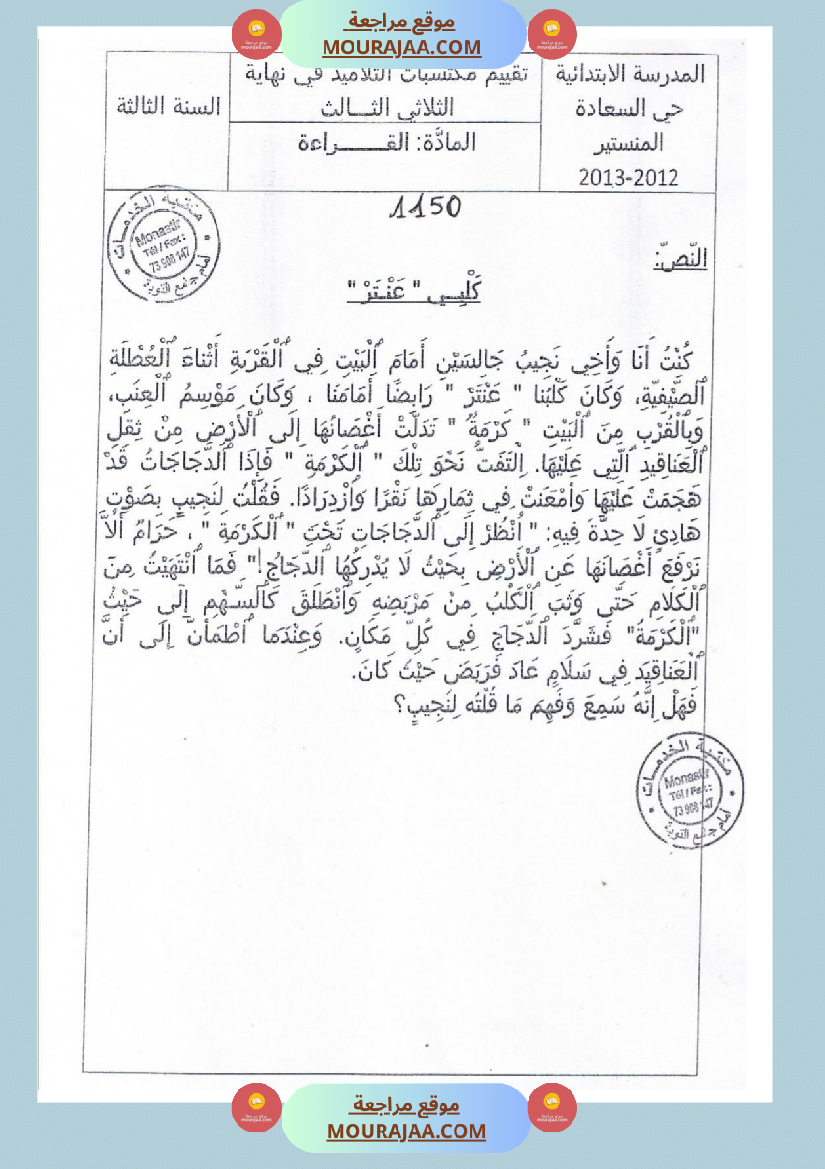 موقع مراجعة
MOURAJAA.COM
المدرسة الابتدائية
حي السعادة
المنستير
2013-2012
تقييم مكتسبات التلاميذ في نهاية
الثلاثي الثـــالث
المادَّة: القــــــــراءة
السنة الثالثة
1150
مكتبة الخدمات
Monastir
Tél / Fax :
73 908 147
أمام جامع التوبة
النّصّ:
كَلْبِــي " عَنْـتَرْ "
كُنْتُ أَنَا وَأَخِي نَجِيبُ جَالِسَيْنِ أَمَامَ ٱلْبَيْتِ فِي ٱلْقَرْيَةِ أَثْناءَ ٱلْعُطْلَةِ
ٱلصَّيْفِيّةِ، وَكَانَ كَلْبُنا " عَنْتَرْ " رَابِضًا أَمَامَنَا ، وَكَانَ مَوْسِمُ ٱلْعِنَبِ،
وَبِٱلْقُرْبِ مِنَ ٱلْبَيْتِ " كَرْمَةٌ " تَدَلَّتْ أَغْصَانُهَا إِلَى ٱلْأَرْضِ مِنْ ثِقَلِ
ٱلْعَنَاقِيدِ ٱلَّتِي عَلَيْهَا. اِلْتَفَتُّ نَحْوَ تِلْكَ " ٱلْكَرْمَةِ " فَإِذَا ٱلدَّجَاجَاتُ قَدْ
هَجَمَتْ عَلَيْهَا وَأَمْعَنَتْ فِي ثِمَارِهَا نَقْرًا وَٱزْدِرَادًا. فَقُلْتُ لِنَجِيبٍ بِصَوْتٍ
هَادِئٍ لَا حِدَّةَ فِيهِ: " اُنْظُرْ إِلَى ٱلدَّجَاجَاتِ تَحْتَ " ٱلكَرْمَةِ " ، حَرَامٌ أَلاَّ
نَرْفَعَ أَغْصَانَهَا عَنِ ٱلْأَرْضِ بِحَيْثُ لَا يُدْرِكُهَا ٱلدّجَاجُ!" فَمَا ٱنْتَهَيْتُ مِنَ
ٱلْكَلَامِ حَتَّى وَثَبَ ٱلْكَلْبُ مِنْ مَرْبَضِهِ وَٱنْطَلَقَ كَٱلسّـهْمِ إِلَى حَيْثُ
"ٱلْكَرْمَةُ" فَشَرَّدَ ٱلدّجَاجَ فِي كُلِّ مَكَانٍ. وَعِنْدَمَا ٱطْمَأَنَّ إِلَى أَنَّ
ٱلْعَنَاقِيدَ فِي سَلَامٍ عَادَ فَرَبَضَ حَيْثُ كَانَ.
فَهَلْ إِنَّهُ سَمِعَ وَفَهِمَ مَا قُلْتُه لِنَجِيبٍ؟
مكتبة الخدمات
Monastir
Tél / Fax :
73 908 147
أمام جامع التوبة
موقع مراجعة
MOURAJAA.COM